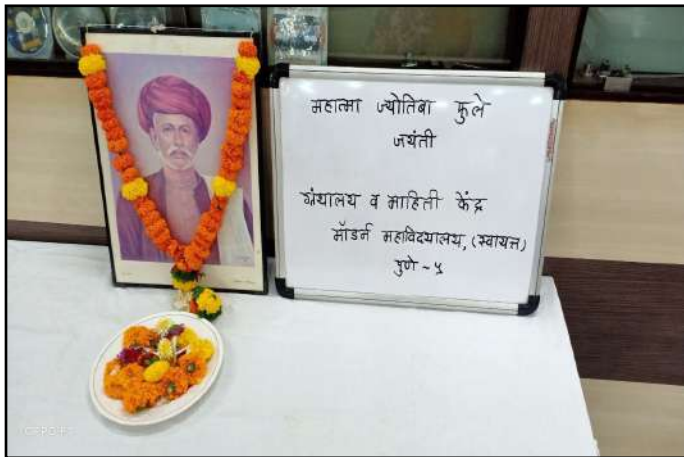 महात्मा ज्योतिबा फुले
जयंती
ग्रंथालय व माहिती केंद्र
मॉडर्न महाविद्यालय, (स्वायत्त)
पुणे ~ ५